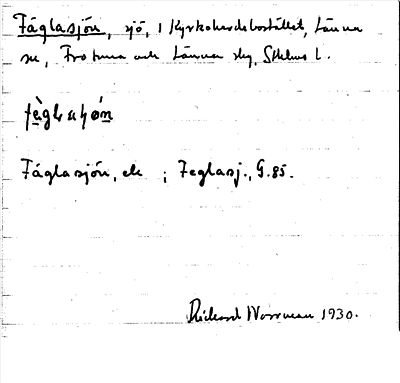 Fåglasjön, sjö, 1 Kyrkoherdebostället, Länna
sn, Frötuna och Länna skg, Sthlms l.
Fåglasjön, ek ; Feglasj., G. 85.
Rickard Norrman 1930.